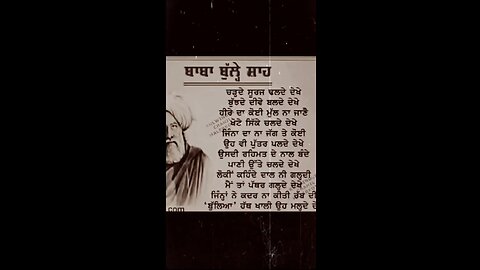 ਬਾਬਾ ਬੁੱਲ੍ਹੇ ਸ਼ਾਹ
ਚੜ੍ਹਦੇ ਸੂਰਜ ਢਲਦੇ ਦੇਖੇ
ਬੁੱਝਦੇ ਦੀਵੇ ਬਲਦੇ ਦੇਖੇ
ਹੀਰੇ ਦਾ ਕੋਈ ਮੁੱਲ ਨਾ ਜਾਣੈ
ਖੋਟੇ ਸਿੱਕੇ ਚਲਦੇ ਦੇਖੇ
ਜਿੰਨਾ ਦਾ ਨਾ ਜੱਗ ਤੇ ਕੋਈ
ਉਹ ਵੀ ਪੁੱਤਰ ਪਲਦੇ ਦੇਖੇ
ਉਸਦੀ ਰਹਿਮਤ ਦੇ ਨਾਲ ਬੰਦੇ
ਪਾਣੀ ਉੱਤੇ ਚਲਦੇ ਦੇਖੇ
ਲੋਕੀਂ ਕਹਿੰਦੇ ਦਾਲ ਨੀ ਗਲ੍ਹਦੀ
ਮੈਂ ਤਾਂ ਪੱਥਰ ਗਲ੍ਹਦੇ ਦੇਖੇ
ਜਿਨ੍ਹਾਂ ਨੇ ਕਦਰ ਨਾ ਕੀਤੀ ਰੱਬ ਦੀ
'ਬੁੱਲਿਆ' ਹੱਥ ਖਾਲੀ ਉਹ ਮਲ੍ਹਦੇ
.com